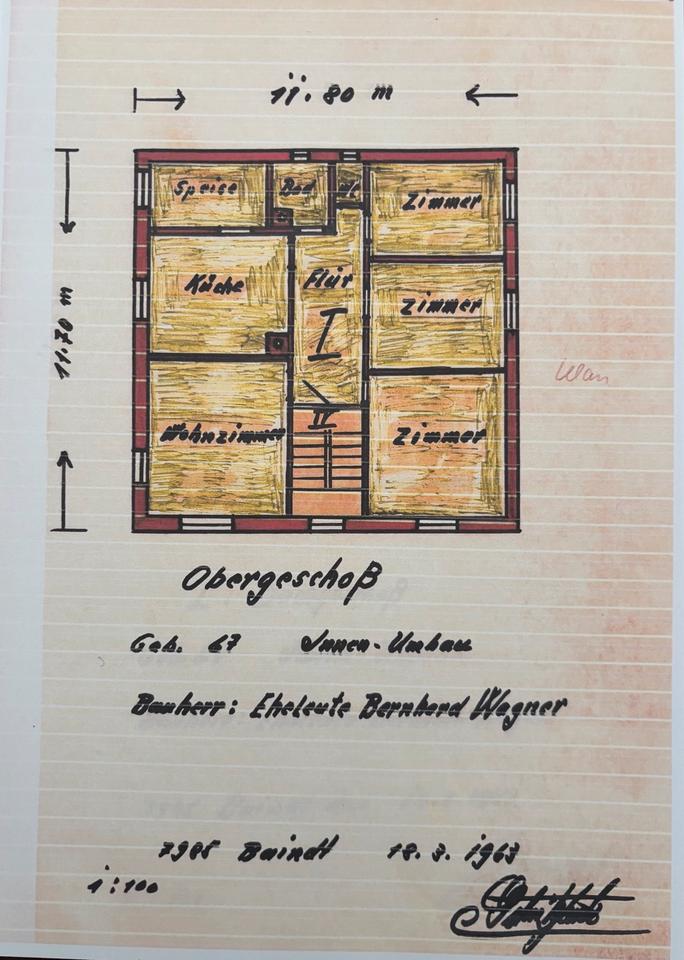 11.80 m
11.70 m
Speise Bad WC Zimmer
Küche Flur Zimmer
I
II
Wohnzimmer Zimmer
Obergeschoß
Geb. 67 Innen-Umbau
Bauherr: Eheleute Bernhard Wagner
7985 Baindt 18.3.1963
1:100